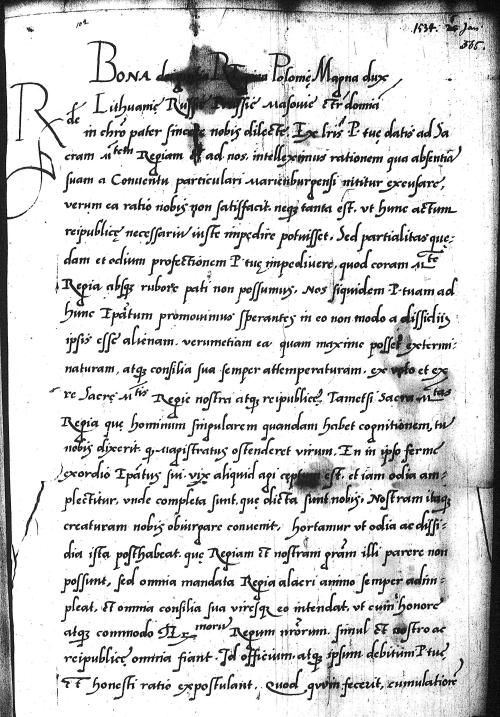 102
1534 24 Jan
365.
BONA dei gratia Regina Polonię Magna dux
Lithuanię Russię Prussię Masovię etc domina
Rde in chro pater sincere nobis dilecte. Ex lris P. tuę datis ad Sa
cram Mtem Regiam et ad nos, intelleximus rationem qua absentiā
suam a Conventu particulari Marienburgensi nititur excusare,
verum ea ratio nobis non satisfacit. neq; tanta est, vt hunc actum
reipublicę necessariū iuste impedire potuisset. Sed partialitas que-
dam et odium profectionem P. tuę impedivere, quod coram Mte
Regia absq; rubore pati non possumus. Nos siquidem P. tuam ad
hunc Epatum promovimus sperantes in eo non modo a dissidiis
ipsis esse alienam. verumetiam ea quam maxime posset extermi-
naturam, atq; consilia sua semper attemperaturam. ex voto et ex
re Sacrę Mtis Regię nostra atq; reipublicę. Tametsi Sacra Mtas
Regia que hominum singularem quandam habet cognitionem, tū
nobis dixerit. q. Magistratus ostenderet virum. En in ipso ferme
exordio Epatus sui vix aliquid api ceptum est. et iam odia am-
plectitur, vnde completa sunt. que dicta sunt nobis. Nostram itaq;
creaturam nobis obiurgare convenit, hortamur vt odia ac dissi-
dia ista posthabeat. quę Regiam et nostram gram illi parere non
possunt, sed omnia mandata Regia alacri animo semper adim-
pleat, et omnia consilia sua viresq; eo intendat, vt cum honore
atq; commodo Regum nrorum. simul et nostro ac
reipublicę omnia fiant. Id officium. atq; ipsum debitum P. tuę
et honesti ratio expostulant. Quod quum fecerit, cumulatiorē